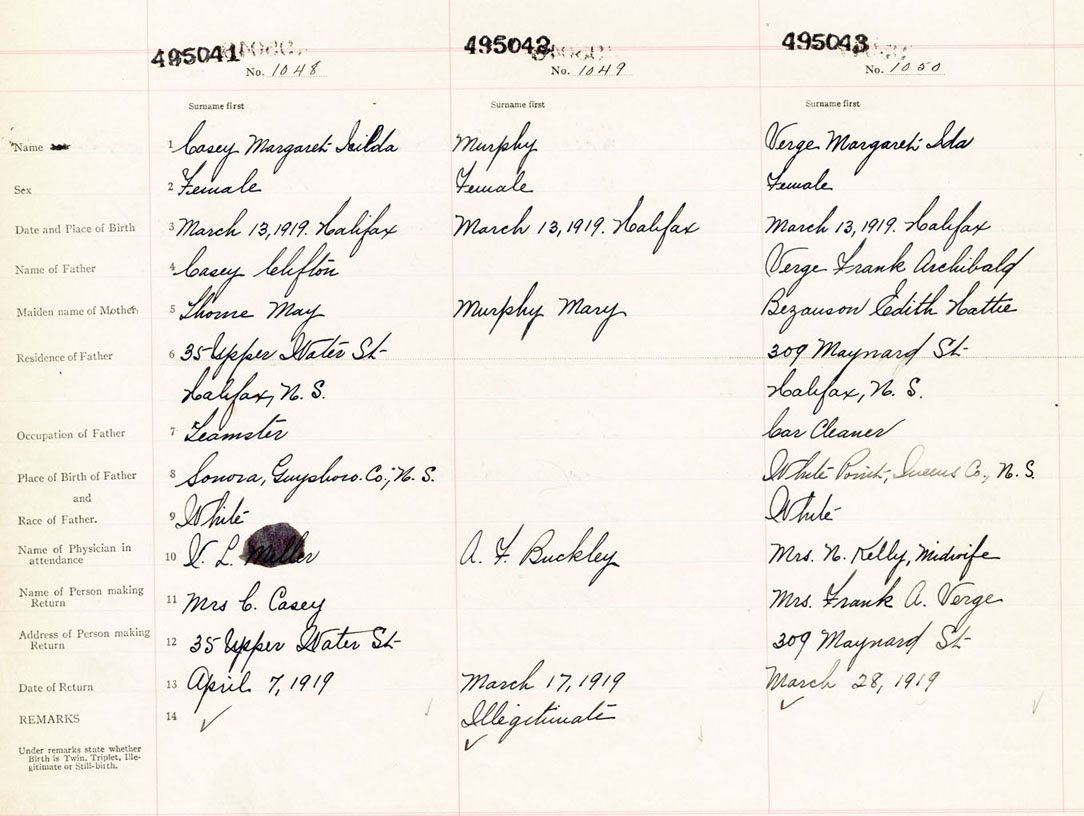 495041 495042 495043
No. 1048 No. 1049 No. 1050
Surname first Surname first Surname first
Name 1 Casey Margaret Murphy Verge Margaret Ida
Sex 2 Female Female Female
Date and Place of Birth 3 March 13, 1919. Halifax March 13, 1919. Halifax March 13, 1919. Halifax
Name of Father 4 Casey Clifton Verge Frank Archibald
Maiden name of Mother 5 Thorne May Murphy Mary Bezanson Edith Hattie
Residence of Father 6 35 Upper Water St 309 Maynard St
Halifax, N. S. Halifax, N. S.
Occupation of Father 7 Teamster Car Cleaner
Place of Birth of Father 8 Sonora, Guysboro. Co., N. S. White Point, Queens Co., N. S.
and
Race of Father. 9 White White
Name of Physician in attendance 10 V. L. Miller A. F. Buckley Mrs. N. Kelly, Midwife
Name of Person making Return 11 Mrs C. Casey Mrs. Frank A. Verge
Address of Person making Return 12 35 Upper Water St 309 Maynard St
Date of Return 13 April 7, 1919 March 17, 1919 March 28, 1919
REMARKS 14 Illegitimate
Under remarks state whether
Birth is Twin, Triplet, Ille-
gitimate or Still-birth.